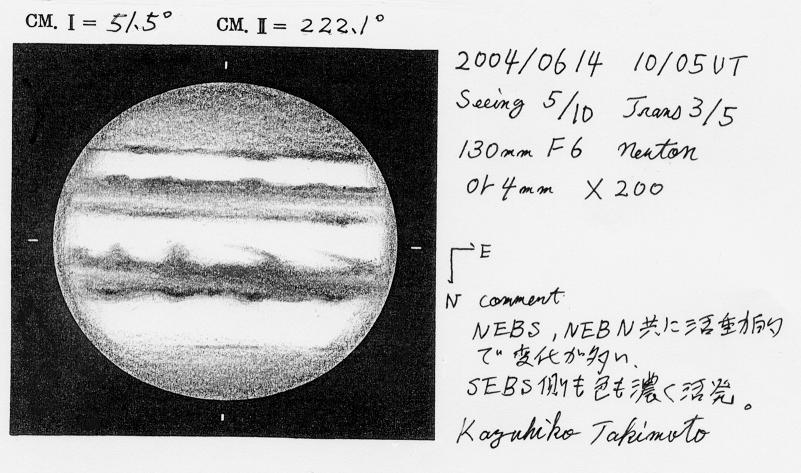 CM. I = 51.5° CM. II = 222.1°
2004/06/14 10/05 UT
Seeing 5/10 Trans 3/5
130mm F6 newton
Or 4mm × 200
E
N comment
NEBS, NEBN共に活動的
で変化が多い、
SEBS側も色も濃く活発。
Kazuhiko Takimoto